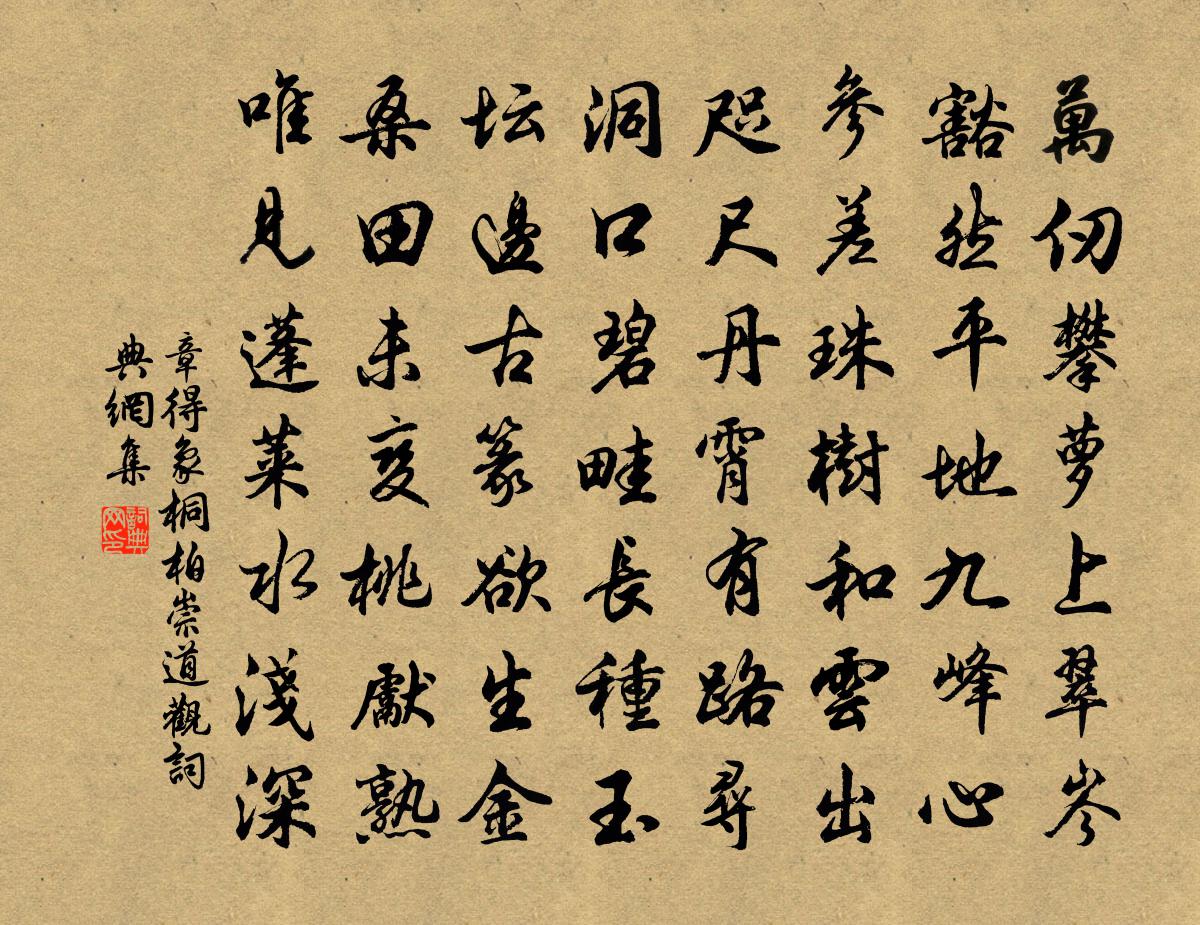 萬仞攀萝上翠岑
豁然平地九峰心
參差珠樹和雲出
咫尺丹霄有路尋
洞口碧畦長種玉
坛邊古篆欲生金
桑田未变桃獻熟
唯見蓬萊水淺深
章得象桐柏崇道觀詞
典網集
詞典
网印